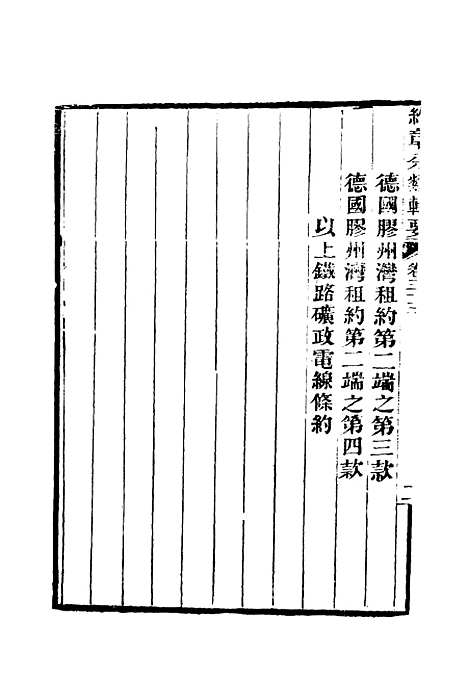 約章分類輯要 卷三十二
德國膠州灣租約第二端之第三款
德國膠州灣租約第二端之第四款
以上鐵路礦政電線條約